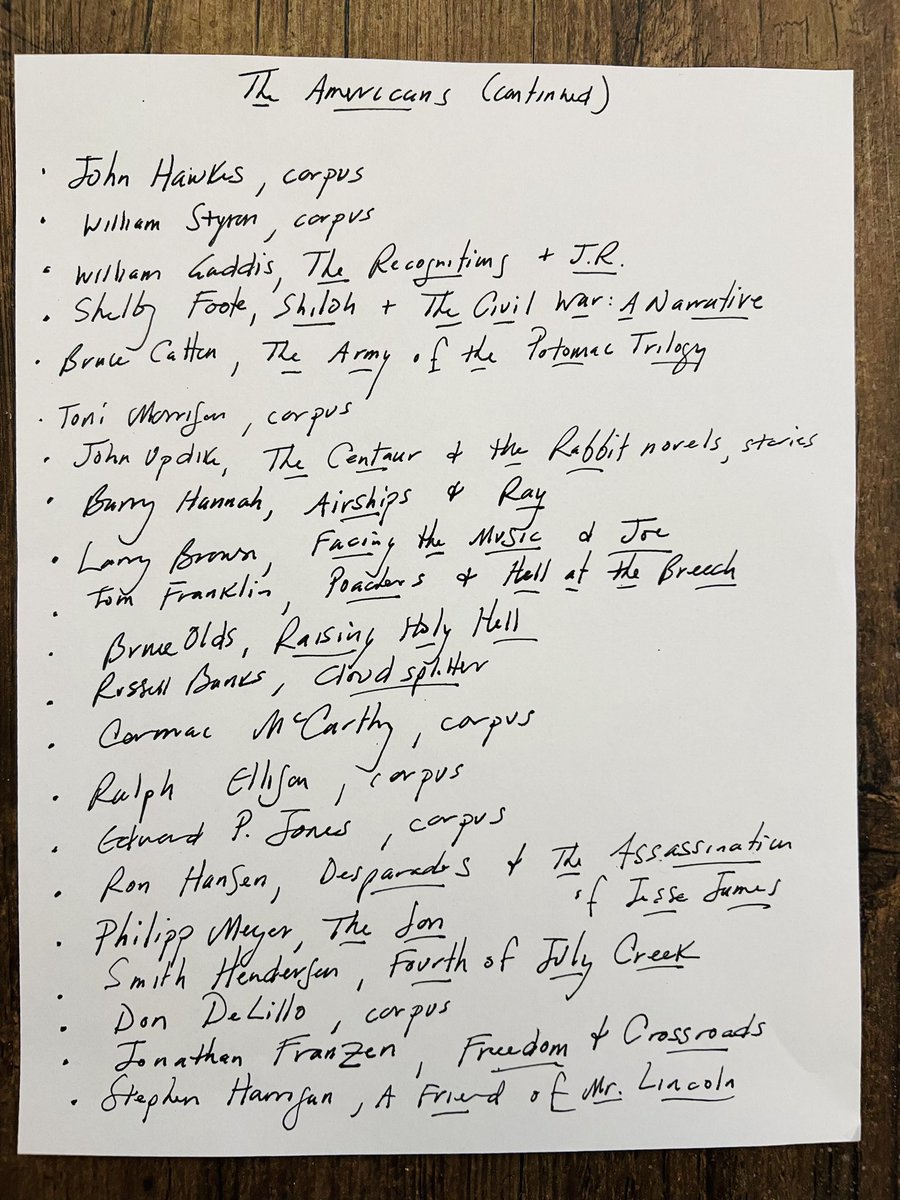 The Americans (continued)
· John Hawkes, corpus
· William Styron, corpus
· William Gaddis, The Recognitions + J.R.
· Shelby Foote, Shiloh + The Civil War: A Narrative
· Bruce Catton, The Army of the Potomac Trilogy
· Toni Morrison, corpus
· John Updike, The Centaur & the Rabbit novels, stories
· Barry Hannah, Airships & Ray
· Larry Brown, Facing the Music & Joe
· Tom Franklin, Poachers & Hell at the Breech
· Bruce Olds, Raising Holy Hell
· Russell Banks, Cloudsplitter
· Cormac McCarthy, corpus
· Ralph Ellison, corpus
· Edward P. Jones, corpus
· Ron Hansen, Desparados & The Assassination
of Jesse James
· Philipp Meyer, The Son
· Smith Henderson, Fourth of July Creek
· Don DeLillo, corpus
· Jonathan Franzen, Freedom & Crossroads
· Stephen Harrigan, A Friend of Mr. Lincoln